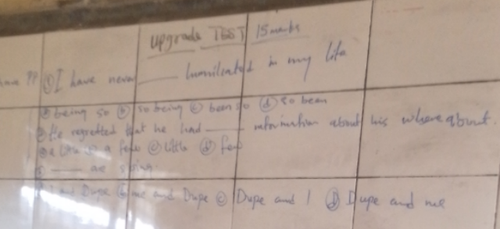 Upgrade TEST 15 marks
① I have never ___ humiliated in my life
ⓐ being so ⓑ so being ⓒ been so ⓓ so been
② He regretted that he had ___ information about his whereabout.
a few ⓒ little ⓓ few
___ are going
Dupe and I ⓓ Dupe and me